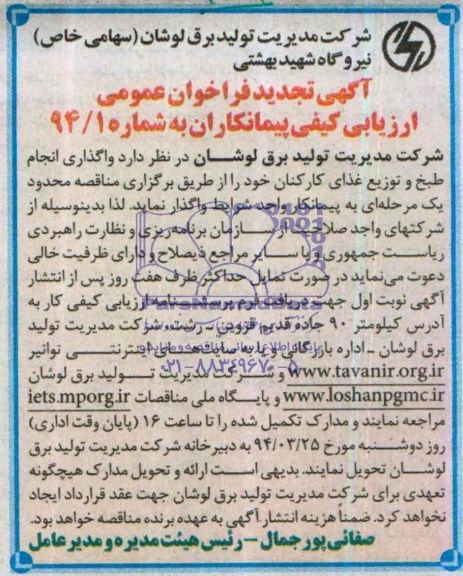 شرکت مدیریت تولید برق لوشان (سهامی خاص)
نیروگاه شهید بهشتی
آگهی تجدید فراخوان عمومی
ارزیابی کیفی پیمانکاران به شماره ۹۴/۱
شرکت مدیریت تولید برق لوشان در نظر دارد واگذاری انجام
طبخ و توزیع غذای کارکنان خود را از طریق برگزاری مناقصه محدود
یک مرحله‌ای به پیمانکار واجد شرایط واگذار نماید. لذا بدینوسیله از
شرکتهای واجد صلاحیت از سازمان برنامه‌ریزی و نظارت راهبردی
ریاست جمهوری و یا سایر مراجع ذیصلاح و دارای ظرفیت خالی
دعوت می‌نماید در صورت تمایل حداکثر ظرف هفت روز پس از انتشار
آگهی نوبت اول جهت دریافت فرم پرسشنامه ارزیابی کیفی کار به
آدرس کیلومتر ۹۰ جاده قدیم قزوین - رشت، شرکت مدیریت تولید
برق لوشان - اداره بازرگانی و یا به سایت‌های اینترنتی توانیر
www.tavanir.org.ir و شرکت مدیریت تولید برق لوشان
www.loshanpgmc.ir و پایگاه ملی مناقصات iets.mporg.ir
مراجعه نمایند و مدارک تکمیل شده را تا ساعت ۱۶ (پایان وقت اداری)
روز دوشنبه مورخ ۹۴/۰۳/۲۵ به دبیرخانه شرکت مدیریت تولید برق
لوشان تحویل نمایند. بدیهی است ارائه و تحویل مدارک هیچگونه
تعهدی برای شرکت مدیریت تولید برق لوشان جهت عقد قرارداد ایجاد
نخواهد کرد. ضمناً هزینه انتشار آگهی به عهده برنده مناقصه خواهد بود.
صفائی پور جمال - رئیس هیئت مدیره و مدیر عامل
۰۲۱-۸۸۳۴۹۶۷۰-۵